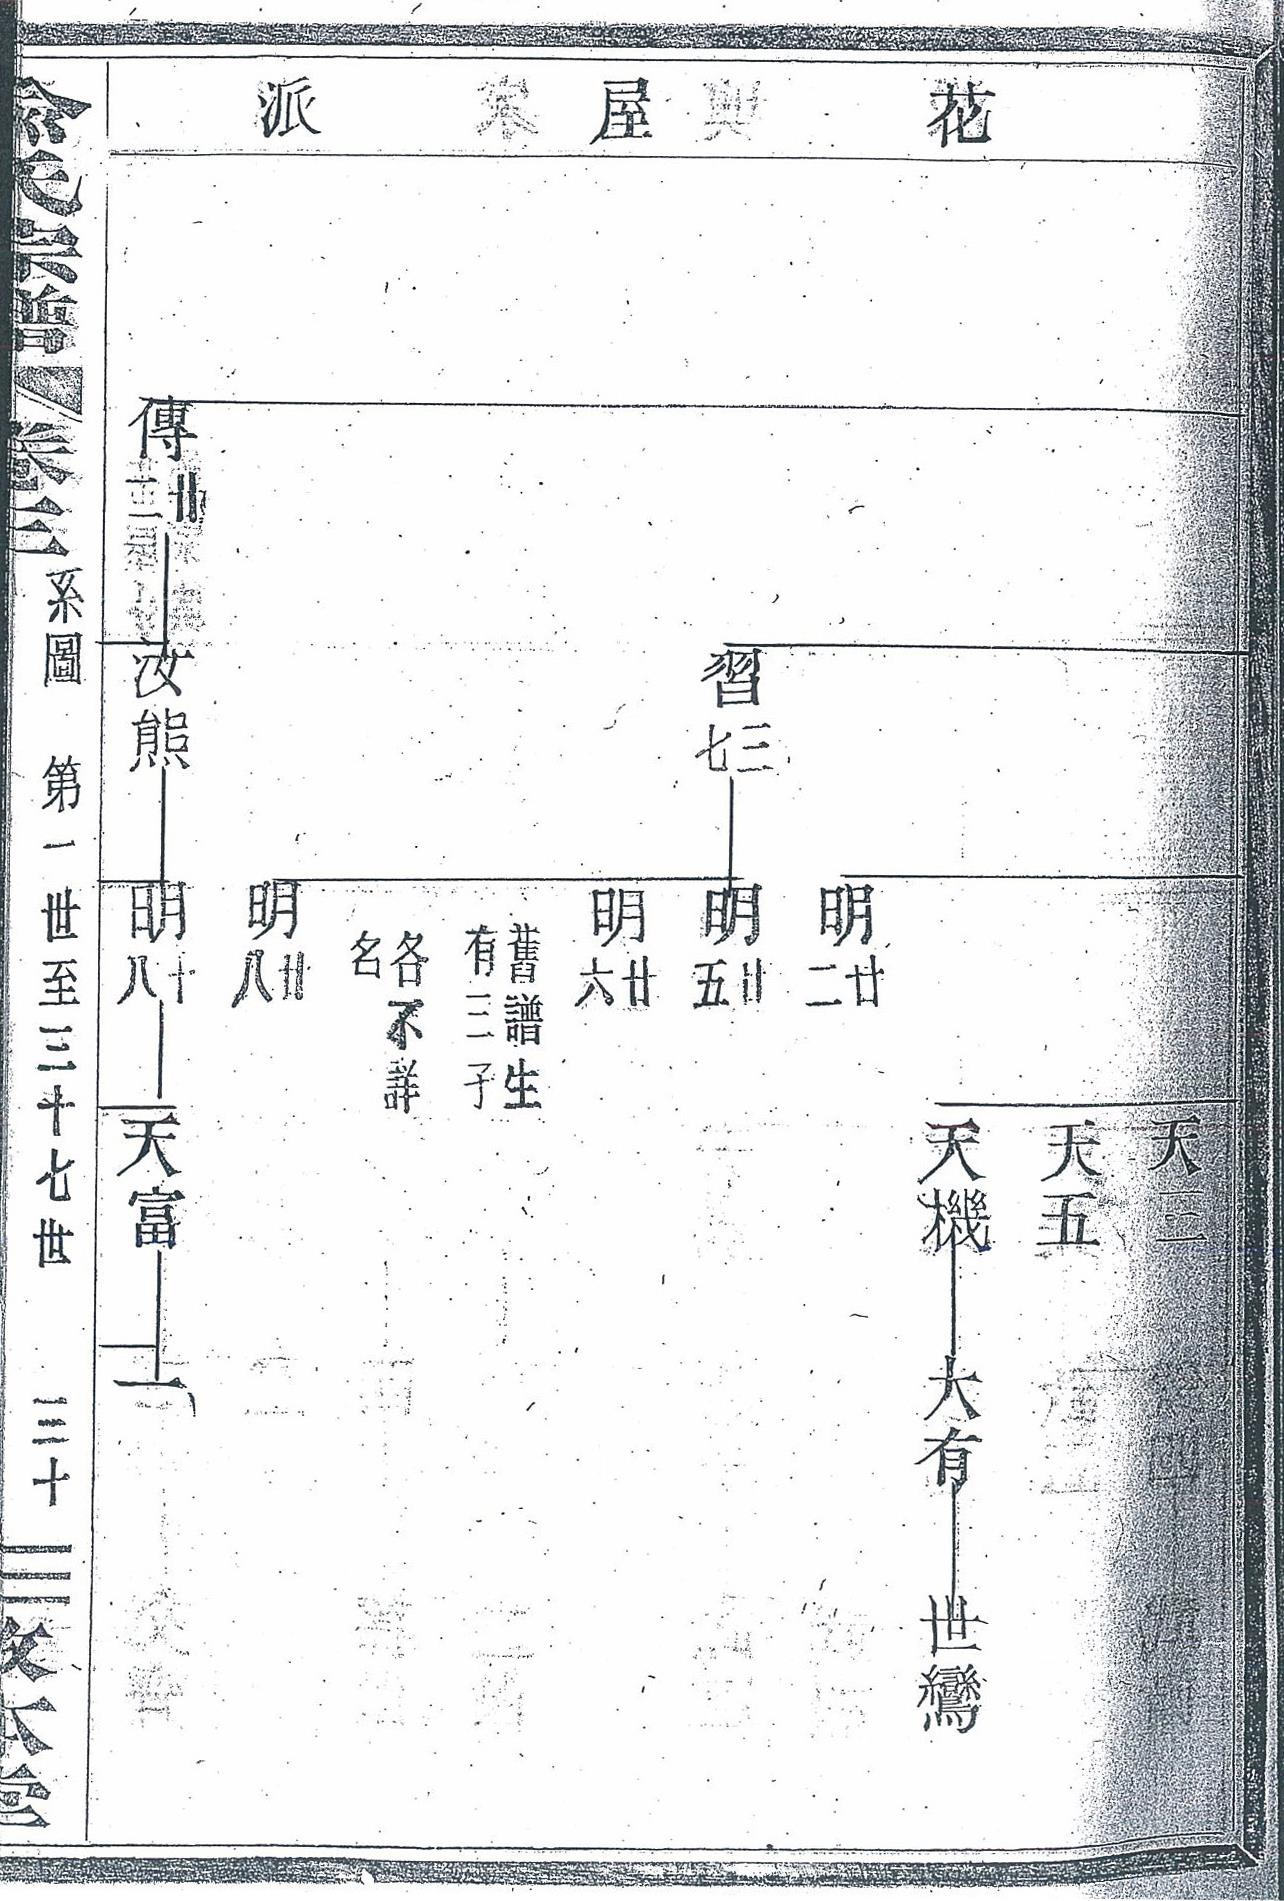 花屋派
天三
天五
天機
大有
世鸞
明廿二
習三七
明廿五
明廿六
舊譜生
有三子
各不詳
名
明廿八
傳廿
汝熊
明十八
天富
氏宗譜
卷三
系圖 第一世至三十七世
三十
敦本堂